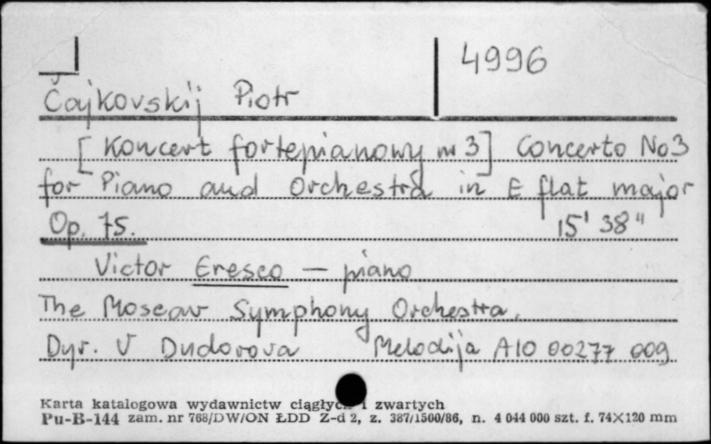 4996
Čajkovskij Piotr
[Koncert fortepianowy nr 3] Concerto No 3
for Piano and Orchestra in E flat major
Op. 75. 15' 38"
Victor Eresco — piano
The Moscow Symphony Orchestra.
Dyr. V Dudorova Melodija A10 00277 009
Karta katalogowa wydawnictw ciągłych i zwartych
Pu-B-144 zam. nr 768/DW/ON ŁDD Z-d 2, z. 387/1500/86, n. 4 044 000 szt. f. 74×120 mm